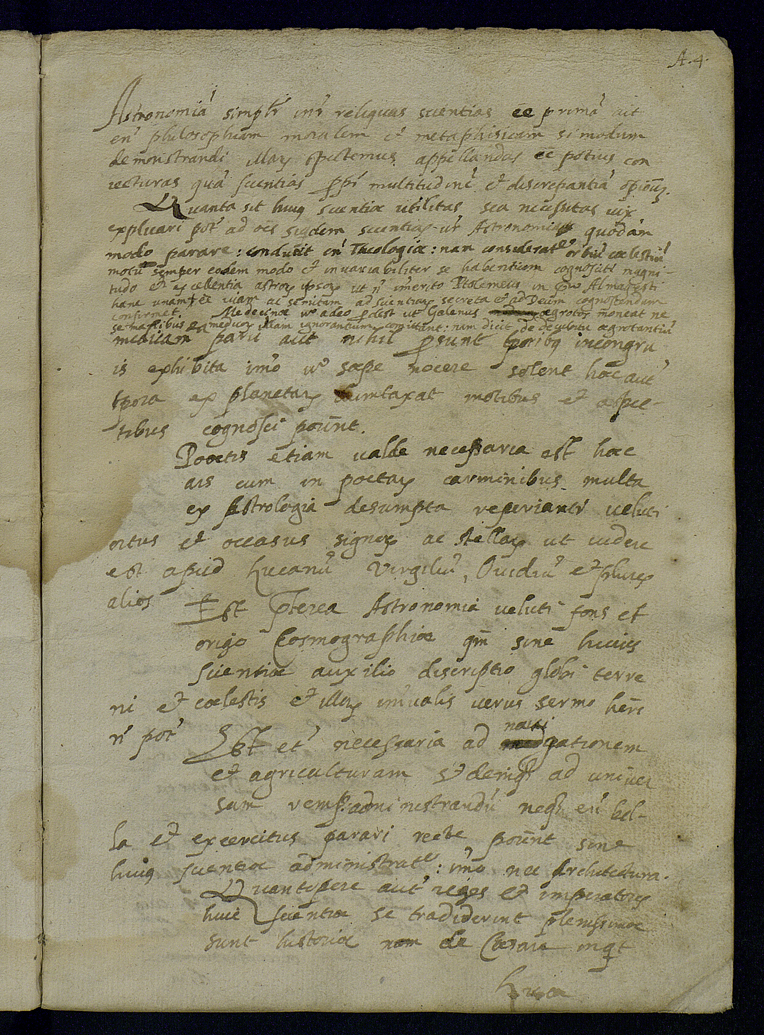 A.4.
Astronomiā simplr̄ int̄ reliquas scientias ēē primā ait
enī philosophiam moralem et metaphisicam si modum
demonstrandi illarū spectemus appellandas ēē potius con
iecturas quā scientias ppī multitudinē et discrepantiā opionū.
Quanta sit huiq scientiæ utilitas, sea necessitas uix
explicari pōt ad oēs siqdem scientias ut Astronomia quodam
modo parare: conducit enī Theologiæ: nam considerat orbiū cœlestiū
motū semper eodem modo et inuariabiliter se habentium cognosciti magni-
tudo et excellentia astrorū ut nō imerito Ptolemeus in Almagesti
hanc unam ēē uiam ac semitam ad scientiam secreta ad Deum cognoscendum
confirmet. Medecinæ uo adeo pdest ut Galenus ægrotos moneat ne
se talibus medicis illam ignorantium comittent: nam dicit de decubitu ægrotantiū
medicam parū aut nihil psunt tporibq incongru
is exhibita imo uo sæpe nocere solent hæc aut
tpora ex planetarū dumtaxat motibus et aspec-
tibus cognosci pount.
Poetis etiam ualde necessaria est hæc
ars cum in poetarū carminibus multa
ex Astrologia desumpta reperiantr ueluti
ortus et occasus signorū ac stellarū ut uidere
est apud Lucanū Virgiliū, Ouidiū et plures
alios Est pterea Astronomia ueluti fons et
origo Cosmographiæ qm sine huius
scientiæ auxilio discriptio globi terre
ni et cœlestis et illorū interualis uerus sermo heri
nō pōt Est etī necessaria ad naui
gationem
et agriculturam et deniq ad uniuer
sam rempadministrandū neq enī bel-
la et exercitus parari recte pount sine
huiq scientiæ administrate: imo nec Architectura.
Quantopere aut reges et imperatores
huic scientiæ se tradiderint plenissimæ
sunt historiæ nam de Cæsare inqt
Luca